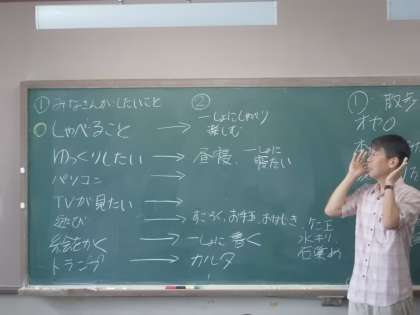 ① みなさんがしたいこと
○ しゃべること →
ゆっくりしたい →
パソコン →
TVが見たい →
遊び →
絵をかく →
トランプ →
②
一しょにしゃべり
楽しむ
昼寝、一しょに
寝たい
すごろく、お手玉、おはじき、ケン玉
水キリ
石集め
一しょに書く
カルタ
① 散歩
オセロ